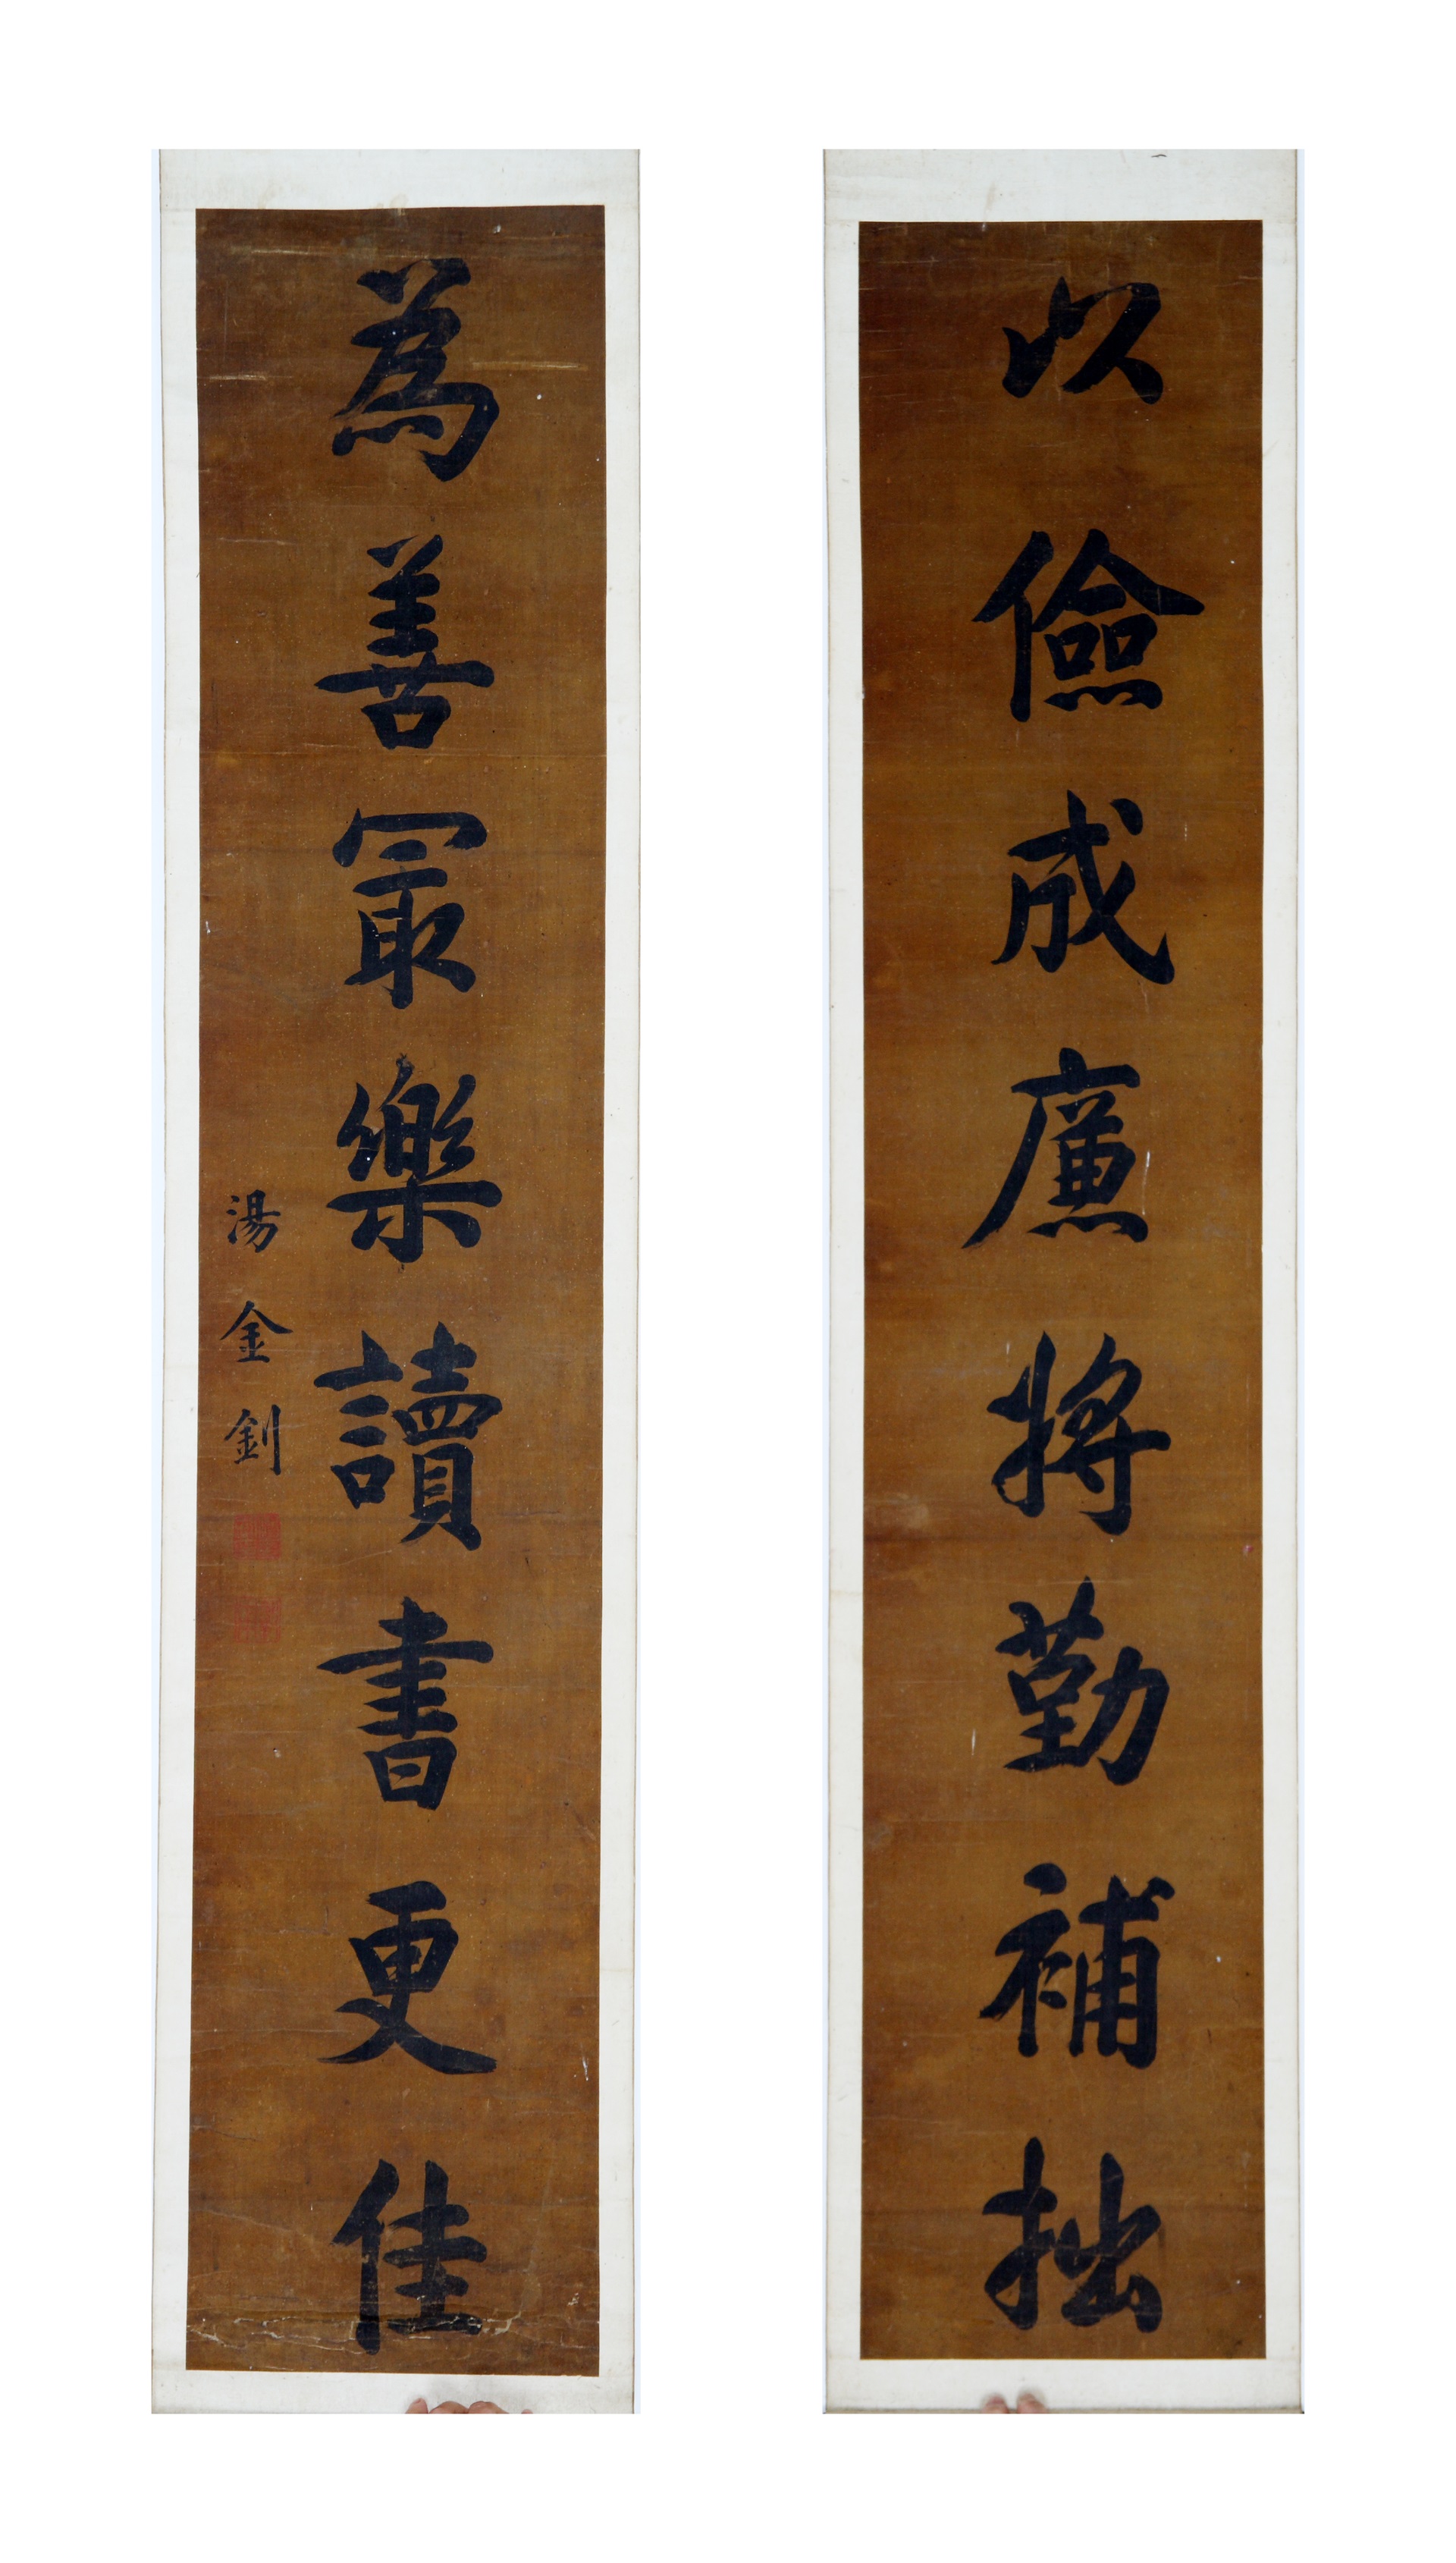 以儉成廉將勤補拙
為善冣樂讀書更佳
湯金釗